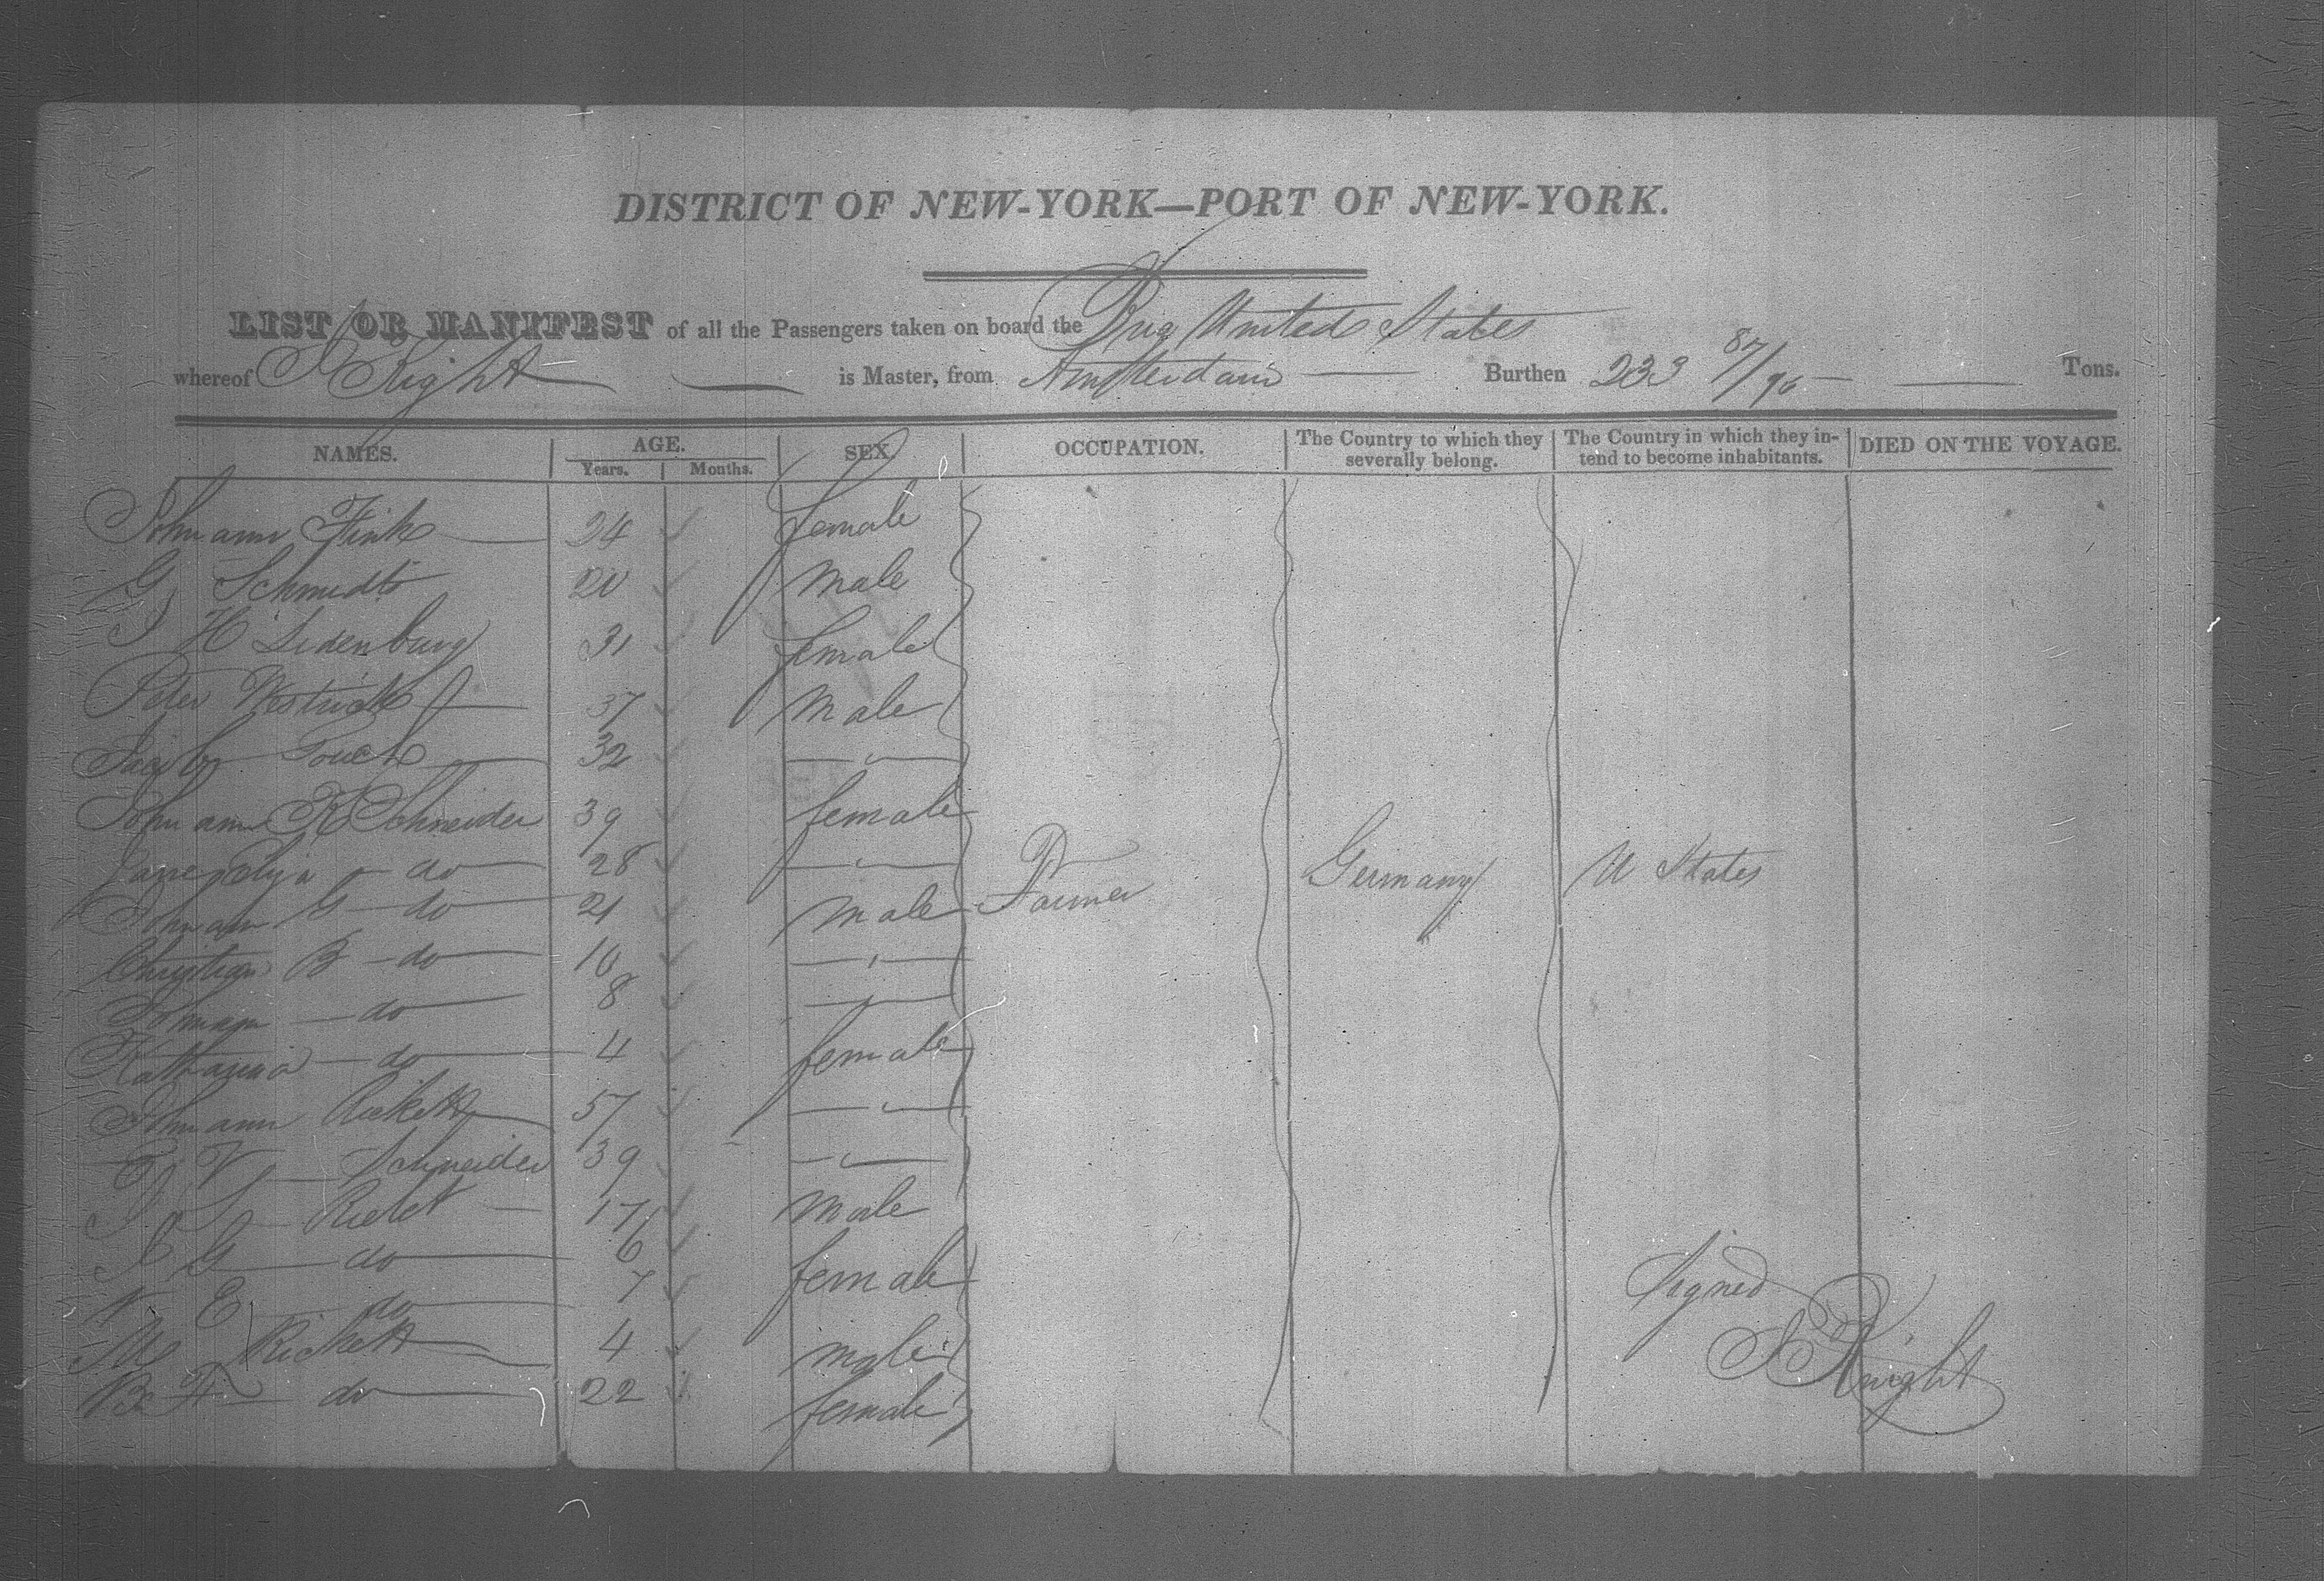 DISTRICT OF NEW-YORK—PORT OF NEW-YORK.
LIST OR MANIFEST of all the Passengers taken on board the Brig United States
whereof Knight is Master, from Amsterdam Burthen 233 87/95 Tons.
NAMES. AGE. SEX. OCCUPATION. The Country to which they severally belong. The Country in which they intend to become inhabitants. DIED ON THE VOYAGE.
Years. Months.
Johann Fink 24 female
G Schmidt 20 male
J H Lidenburg 31 female
Peter 37 male
Jacob 32 "
Johann R Schneider 39 female
do 28 "
Johann G do 21 male Farmer Germany U States
Christian B do 10 "
Johann do 8 "
Katharina do 4 female
Johann Rickett 57 "
V Schneider 39 "
J Rickett 17 male
G do 6
E do 7 female
M Rickett 4 male
B F do 22 female
Signed
Knight